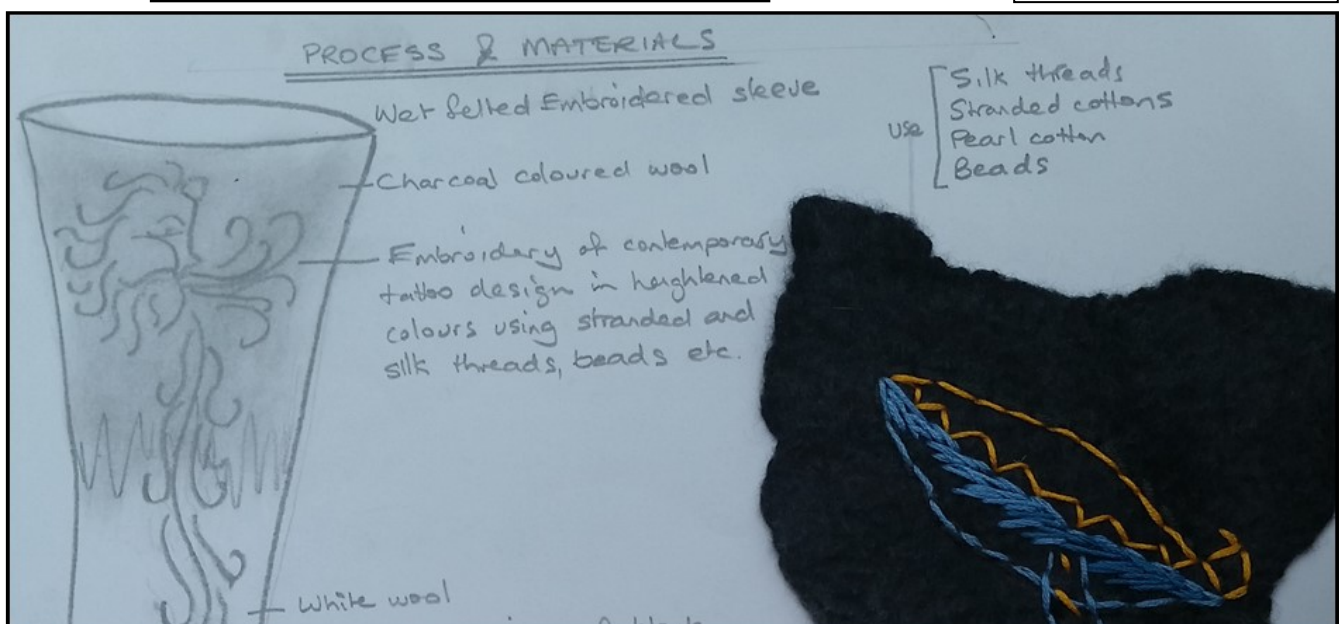 PROCESS & MATERIALS
Wet felted Embroidered sleeve
Charcoal coloured wool
Embroidery of contemporary
tattoo design in heightened
colours using stranded and
silk threads, beads etc.
White wool
use
Silk threads
Stranded cottons
Pearl cotton
Beads